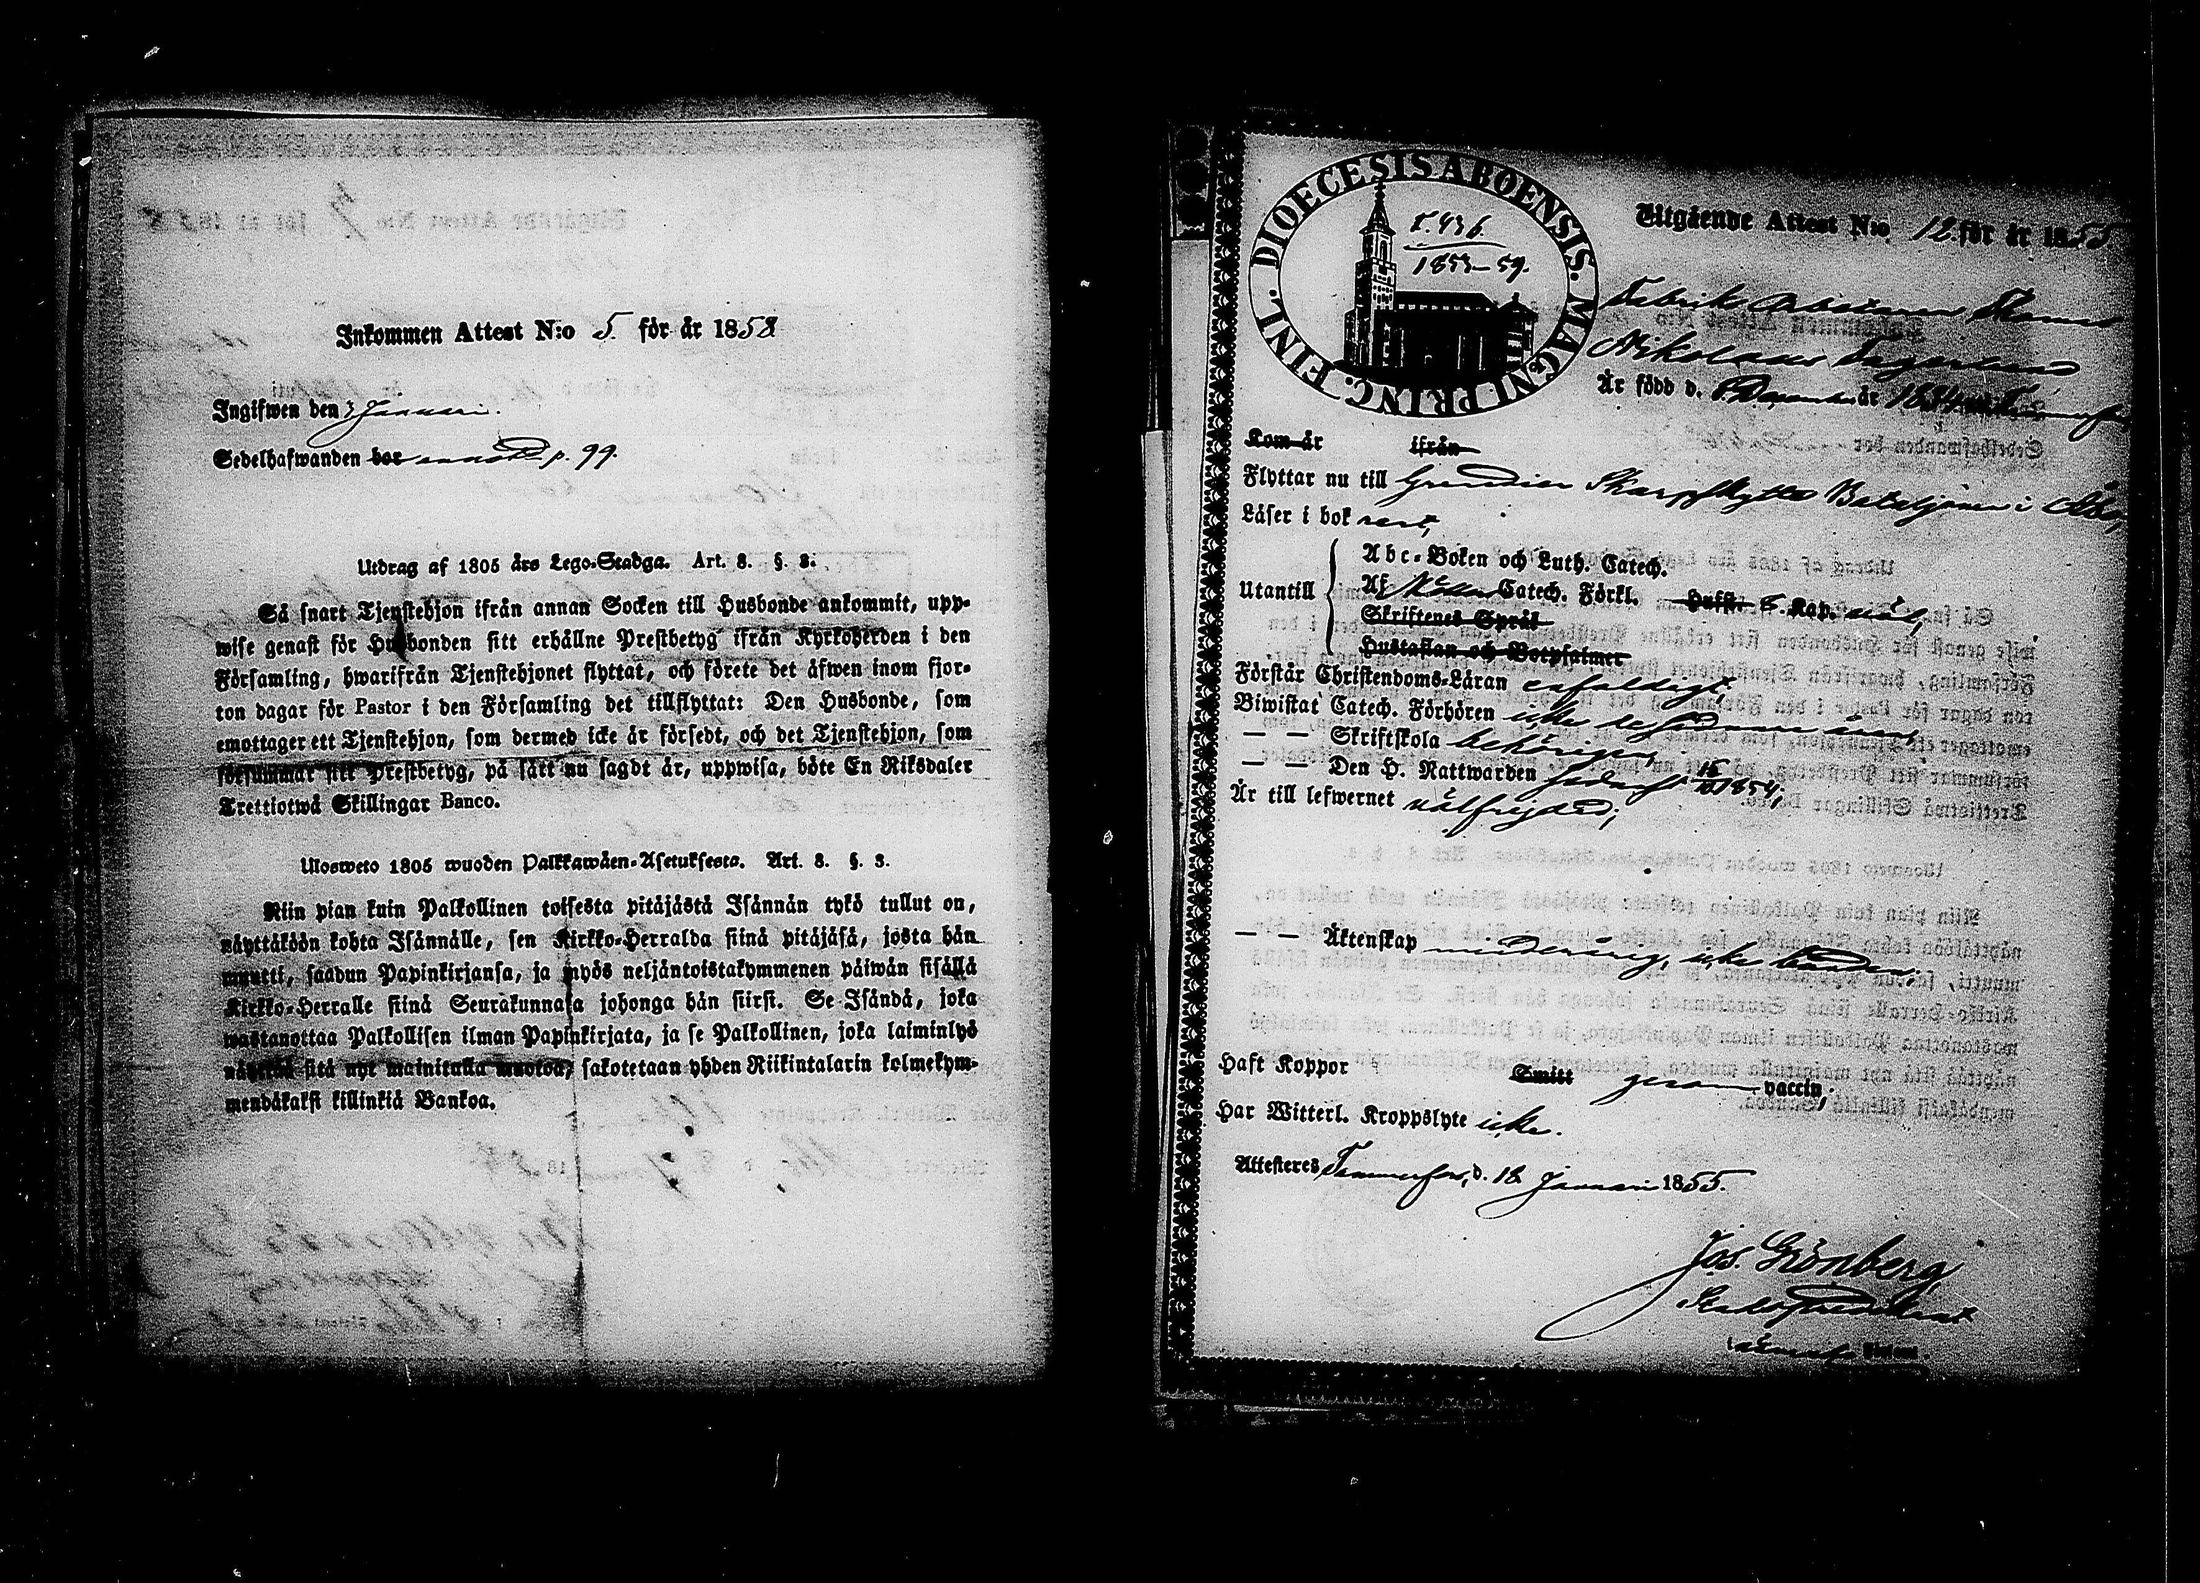 Inkommen Attest N:o 5. för år 1858
Ingifwen den 3 Januari.
Sedelhafwanden har p. 99.
Utdrag af 1805 års Lego-Stadga. Art. 8. §. 3.
Så snart Tjenstehjon ifrån annan Socken till Husbonde ankommit, upp-
wise genast för Husbonden sitt erhållne Prestbetyg ifrån Kyrkoherden i den
Församling, hwarifrån Tjenstehjonet flyttat, och förete det äfwen inom fjor-
ton dagar för Pastor i den Församling det tillflyttat: Den Husbonde, som
emottager ett Tjenstehjon, som dermed icke är försedt, och det Tjenstehjon, som
försummar sitt Prestbetyg, på sätt nu sagdt är, uppwisa, böte En Riksdaler
Trettiotwå Skillingar Banco.
Ulosweto 1805 wuoden Palkkawäen-Asetuksesta. Art. 8. §. 3.
Niin pian kuin Palkollinen toisesta pitäjästä Isännän tykö tullut on,
näyttäköön kohta Isännälle, sen Kirkko-Herralda siinä pitäjäsä, josta hän
muutti, saadun Papinkirjansa, ja myös neljäntoistakymmenen päiwän sisällä
Kirkko-Herralle siinä Seurakunnasa johonga hän siirsi. Se Isändä, joka
wastanottaa Palkollisen ilman Papinkirjata, ja se Palkollinen, joka laiminlyö
näyttää sitä nyt mainitulla muotoa, sakotetaan yhden Riikintalarin kolmekym-
mendäkaksi killinkiä Bankoa.
DIOECESIS ABOENSIS. MAGNI PRINC. FINL.
T. 436.
1853-59.
Utgående Attest N:o 12. för år 1855
Fabriks Arbetaren
Nikolaus Fagerlund
Är född d. 6 December år 1834
Kom år ifrån
Flyttar nu till Grenadier Skarpskytte Bataljonen i Åbo,
Läser i bok rent,
Utantill
Abc-Boken och Luth. Catech.
Af Catech. Förkl. Kap. väl,
Skriftenes Språk
Hustaflan och Botpsalmer
Förstår Christendoms-Läran enfaldigt.
Biwistat Catech. Förhören icke
— — Skriftskola behörigen,
— — Den H. Nattwarden 1854,
Är till lefwernet välfrejdad,
— — Äktenskap minderårig, icke
Haft Koppor Smitt genom vaccin,
Har Witterl. Kroppslyte icke.
Attesteres Tammerfors, d. 18 Januari 1855.
Jos. Grönberg